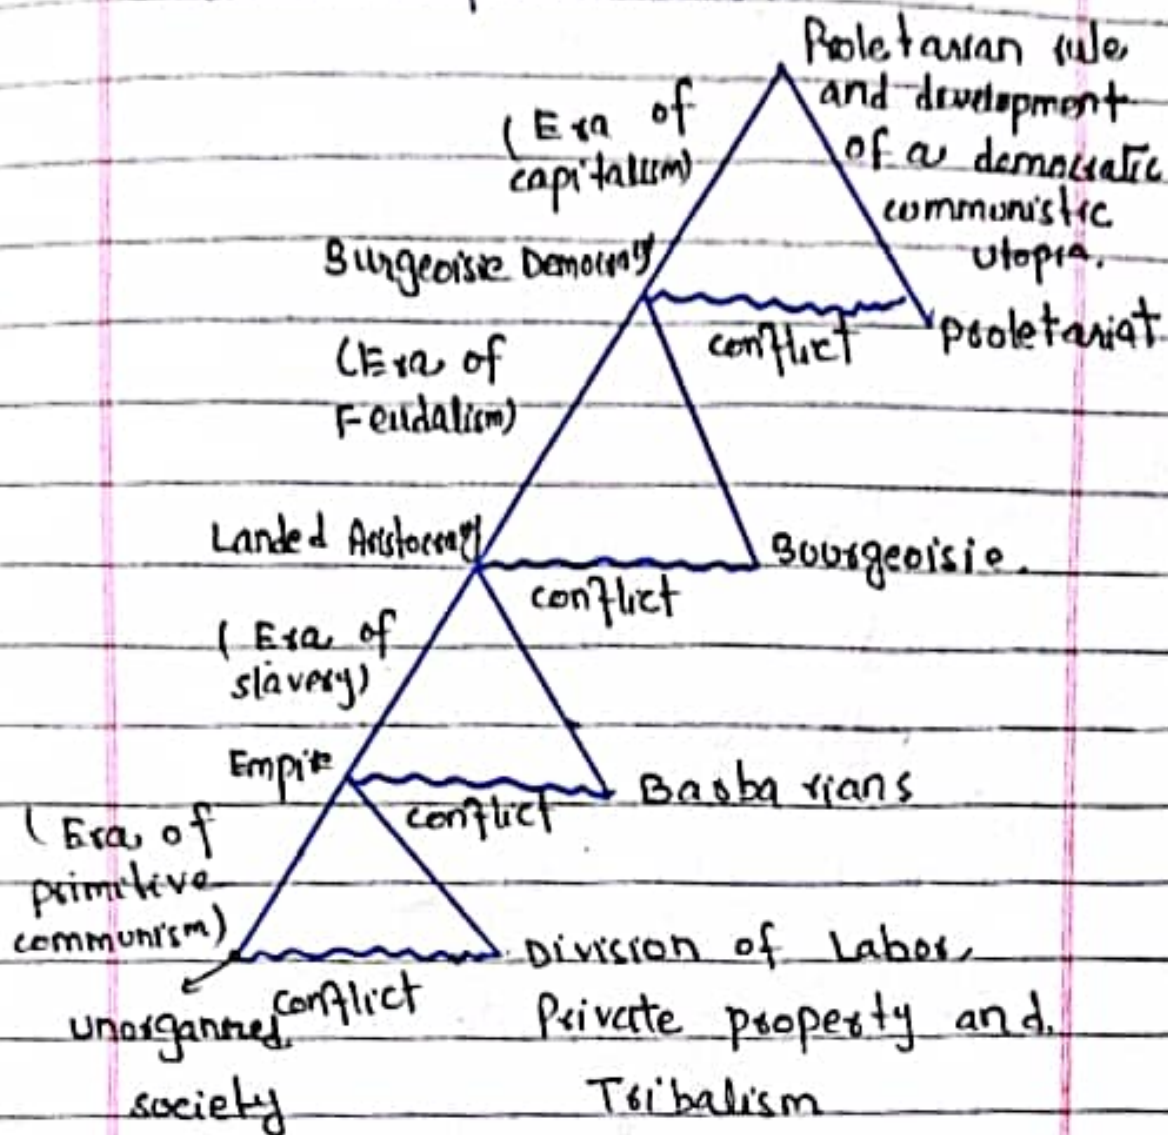 Proletarian rule
and development
of a democratic
communistic
utopia.
(Era of
capitalism)
Burgeoisie Democracy
conflict
Proletariat
(Era of
Feudalism)
Landed Aristocracy
conflict
Bourgeoisie.
(Era of
slavery)
Empire
conflict
Barbarians
(Era of
primitive
communism)
conflict
Division of Labor,
Private property and
Tribalism
unorganized
society